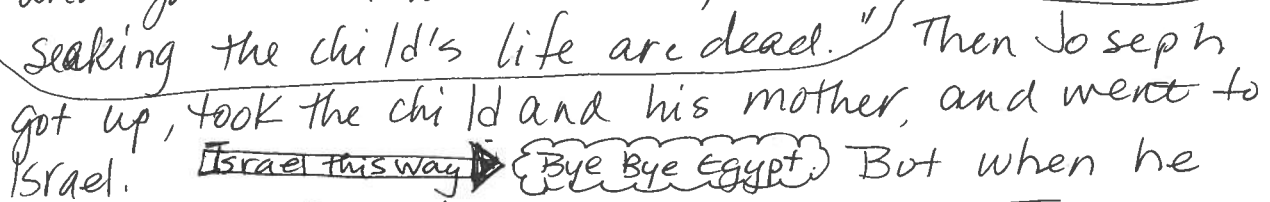 seaking the child's life are dead." Then Joseph
got up, took the child and his mother, and went to
Israel. Israel this way Bye Bye Egypt. But when he